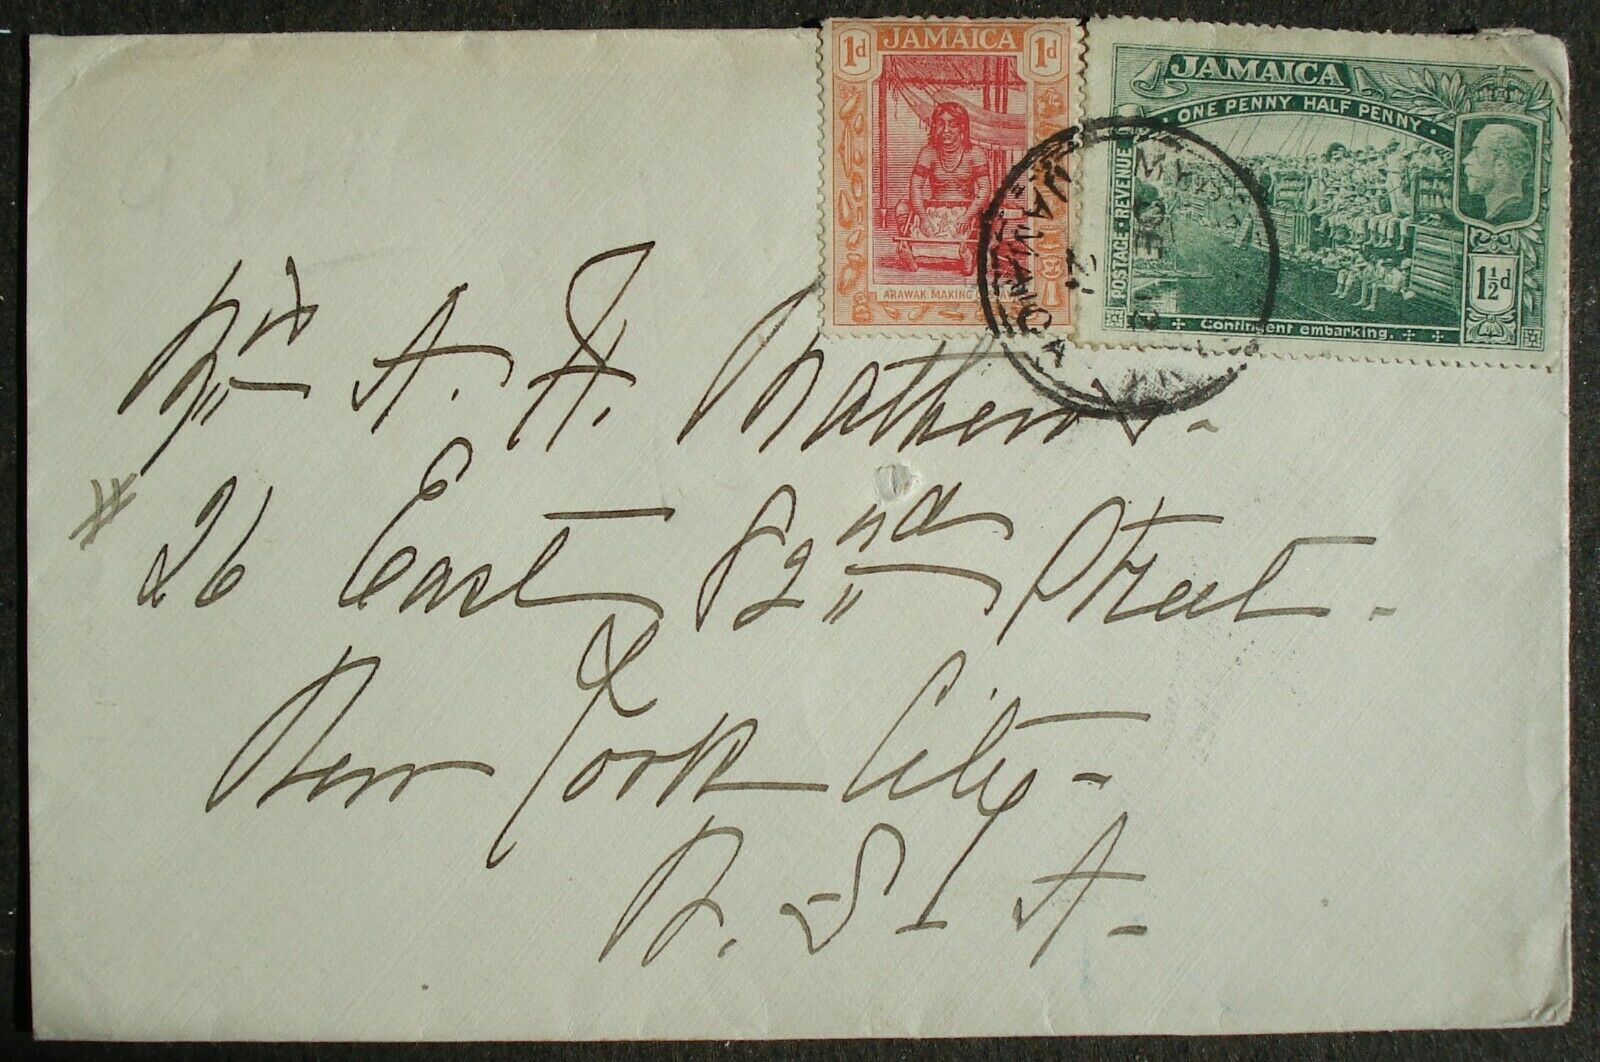 1d JAMAICA 1d
ARAWAK MAKING
JAMAICA
· ONE PENNY HALF PENNY ·
POSTAGE · REVENUE
1½d
Contingent embarking.
JAMAICA
DE
A. H. Mathews.
# 26 East 82nd Street.
New York City.
U. S. A.